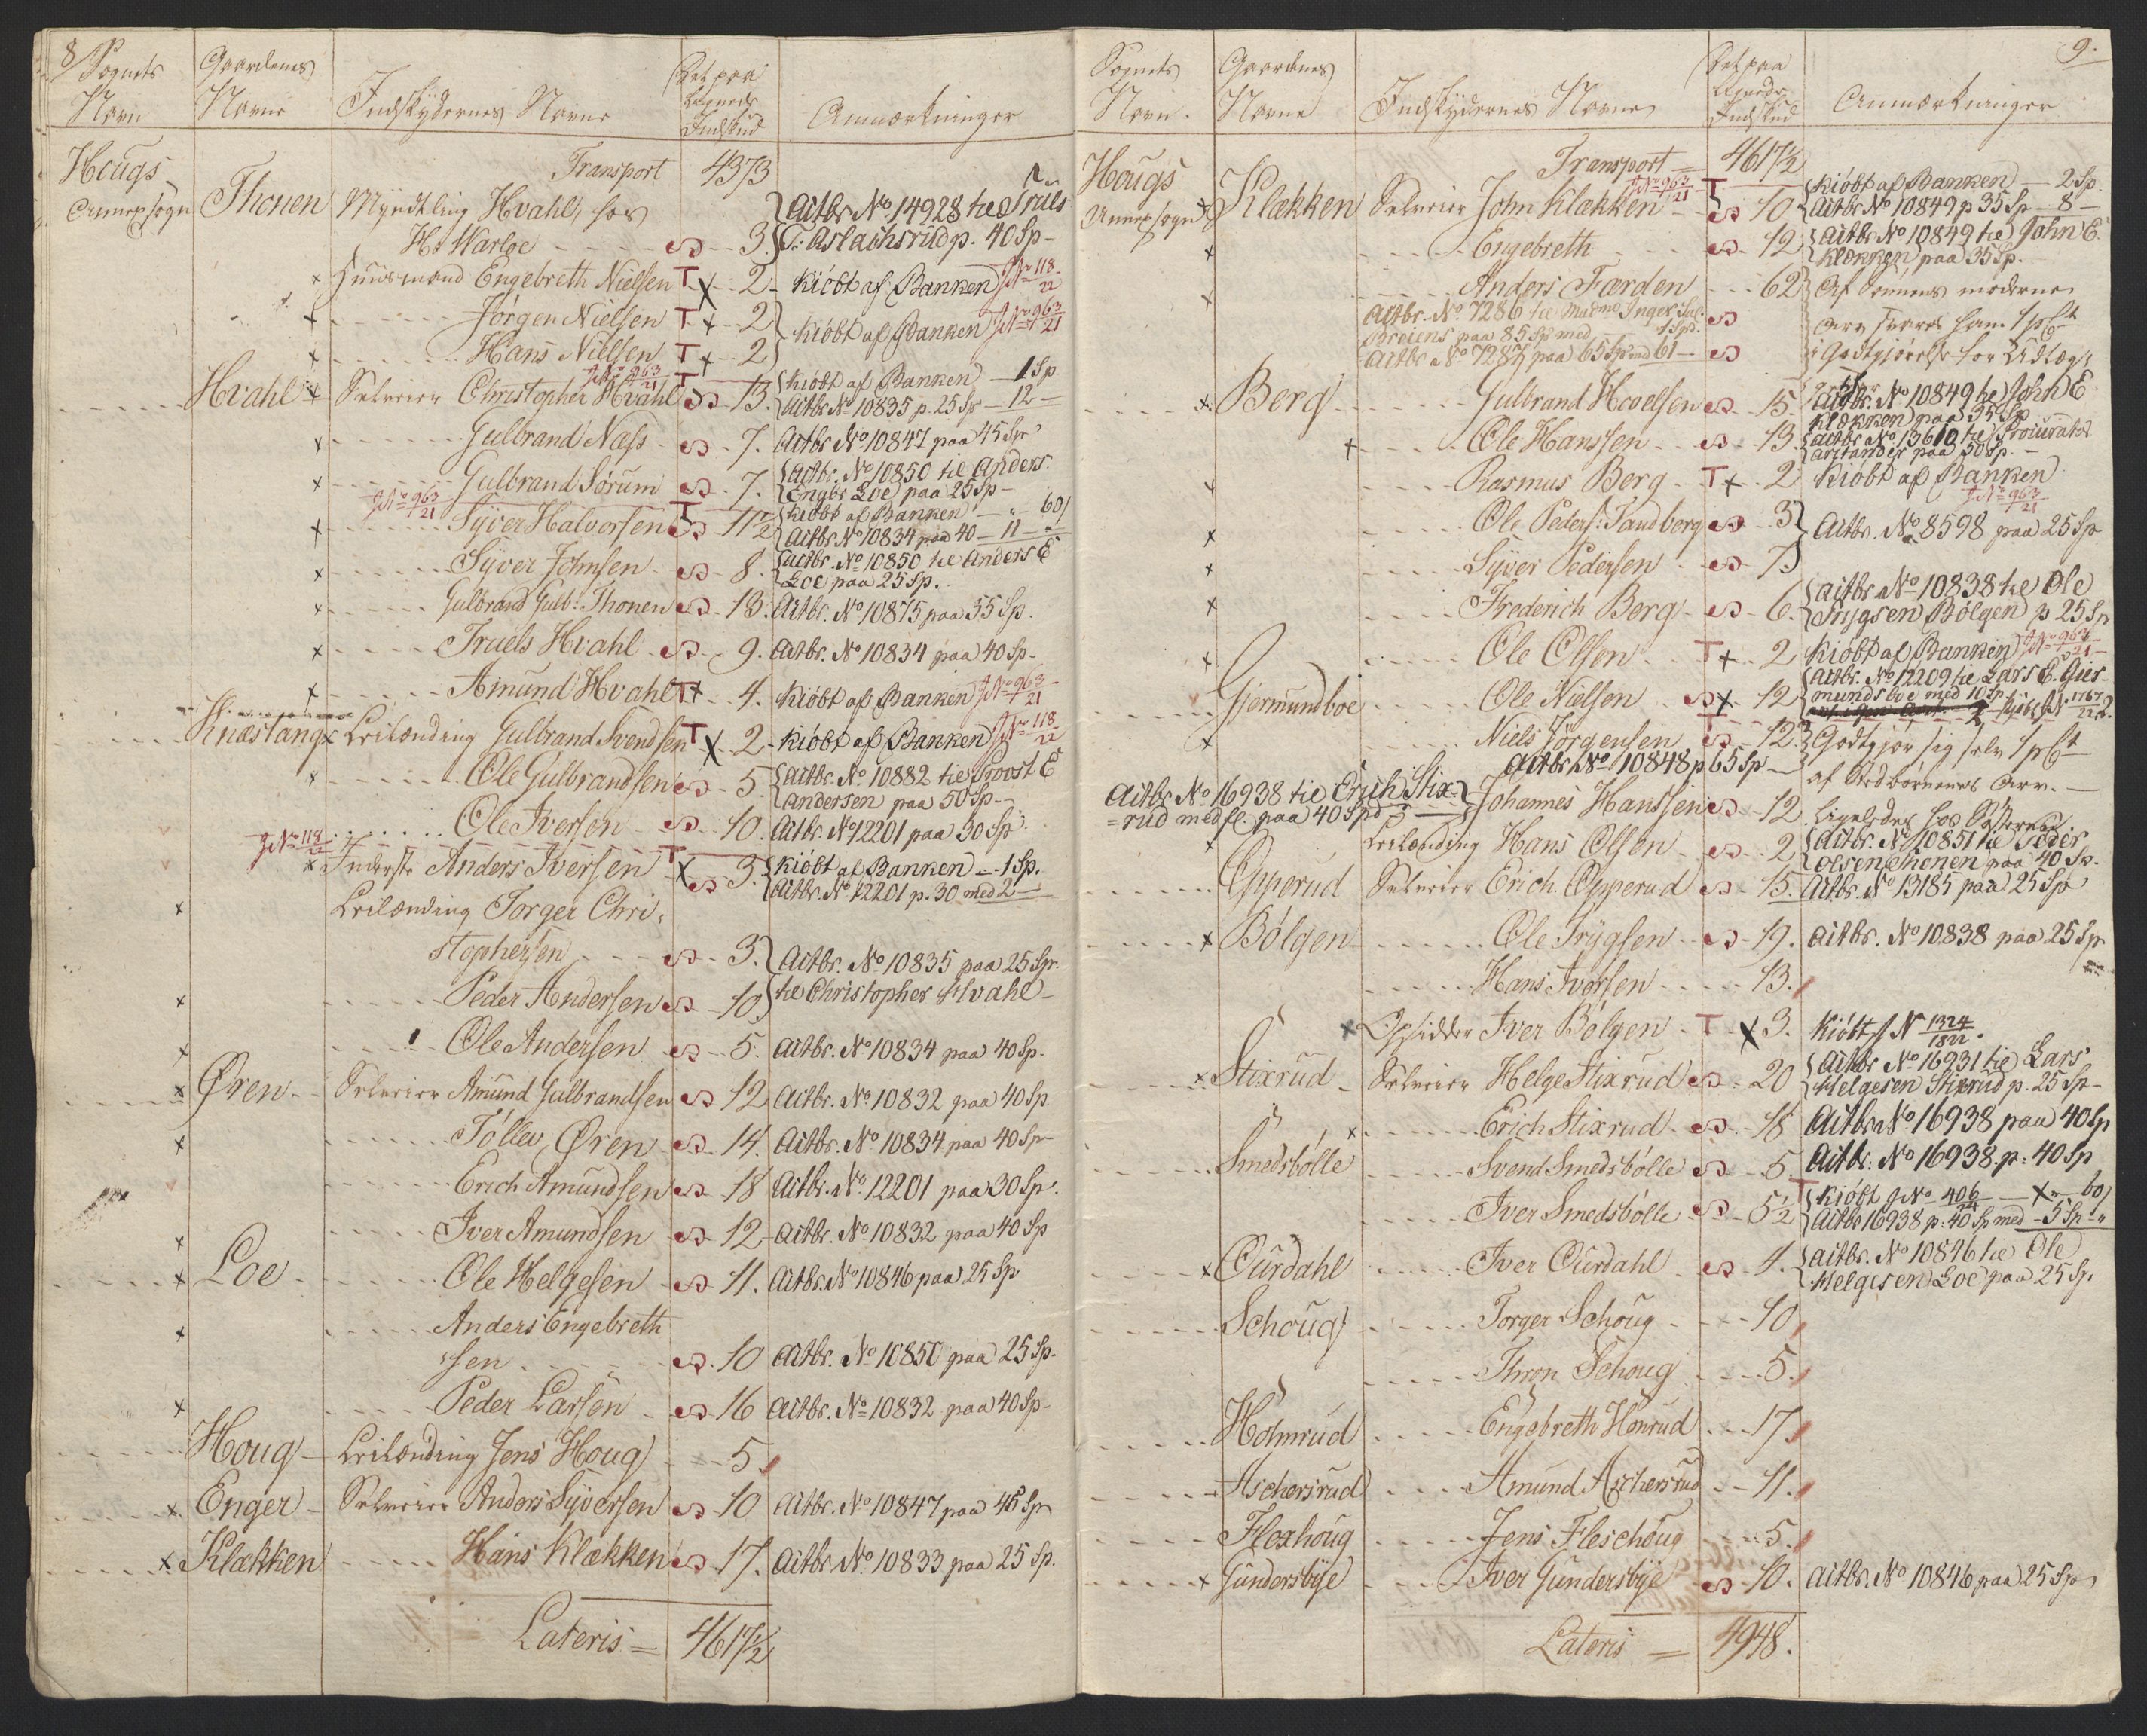 8
Sognets
Navn
Gaardenes
Navne
Indskydernes Navne
Det paa
Lignede
Indskud
Anmærkninger
Hougs
Annexsogn
Transport 4373
Thonen Myndtling Hvahl, hos
Hr Warloe 3. Actbr No 14928 til Truls
C. Aslachsrud p. 40 Sp
x Huusmand Engebreth Nielsen T x 2 Kiöbt af Banken JNo 118/22
x Jörgen Nielsen T x 2
Kiöbt af Banken JNo 963/21
x Hans Nielsen T x 2
JNo 963/21
Hvahl x Selveier Christopher Hvahl T 13. Kiöbt af Banken 1 Sp
Actbr No 10835 p. 25 Sp 12
x Gulbrand Nass 7. Actbr No 10847 paa 45 Sp
x Gulbrand Sörum 7. Actbr. No 10850 til Anders
Engbr Loe paa 25 Sp
JNo 963/21
x Syver Halvorsen T 11½ Kiöbt af Banken 60
Actbr No 10834 paa 40 11
x Syver Johnsen 8. Actbr. No 10850 til Anders E
Loe paa 25 Sp.
x Gulbrand Gulb: Thonen 13. Actbr. No 10875 paa 55 Sp.
x Truels Hvahl 9. Actbr. No 10834 paa 40 Sp
x Amund Hvahl T x 4. Kiöbt af Banken JNo 963/21
Knæstang x Leilænding Gulbrand Svendsen T x 2 Kiöbt af Banken JNo 118/22
x Ole Gulbrandsen 5. Actbr. No 10882 til Provst E
Andersen paa 50 Sp
Ole Iversen 10. Actbr. No 12201 paa 30 Sp
JNo 118/22
x Inderste Anders Iversen T x 3. Kiöbt af Banken 1 Sp.
Actbr. No 12201 p. 30 med 2
x Leilænding Torger Chri,
stophersen 3. Actbr. No 10835 paa 25 Sp.
x Peder Andersen 10 til Christopher Hvahl
x Ole Andersen 5. Actbr. No 10834 paa 40 Sp.
x Øren Selveier Amund Gulbrandsen 12 Actbr. No 10832 paa 40 Sp
x Töllev Øren 14. Actbr. No 10834 paa 40 Sp
Erich Amundsen 18 Actbr. No 12201 paa 30 Sp.
x Iver Amundsen 12 Actbr. No 10832 paa 40 Sp
x Loe Ole Helgesen 11. Actbr. No 10846 paa 25 Sp
x Anders Engebreth
sen 10 Actbr. No 10850 paa 25 Sp.
x Peder Larsen 16 Actbr. No 10832 paa 40 Sp
Houg Leilænding Jens Houg 5
x Enger Selveier Anders Syversen 10 Actbr. No 10847 paa 45 Sp
x Klækken Hans Klækken 17. Actbr No 10833 paa 25 Sp.
Lateris = 4617½
9.
Sognets
Navn.
Gaardenes
Navne
Indskydernes Navne
Det paa
Lignede
Indskud
Anmærkninger
Hougs
Annexsogn
Transport = 4617½
JNo 963/21
x Klækken Selveier John Klækken T 10 Kiöbt af Banken 2 Sp.
Actbr No 10849 p 35 Sp 8
x Engebreth 12 Actbr. No 10849 til John E.
Klækken paa 35 Sp.
x Anders Færden 62 Af Konens moderne
Actbr. No 7286 til Madme Inger Sal.
Breiens paa 85 Sp med 1 Spd.
Arv svares ham 1 pCt
Actbr No 7287 paa 65 Sp med 61
i Godtgjörelse for Udlæg,
x Berg Gulbrand Hoelsen 15. Actbr. No 10849 til John E
Klækken paa 35 Sp
x Ole Hanssen 13. Actbr. No 13610 til Procurator
Arctander paa 50 Sp.
x Rasmus Berg T x 2 Kiöbt af Banken
JNo 963/21
x Ole Peders: Sandborg 3
Actbr. No 8598 paa 25 Sp
x Syver Pedersen 7
x Frederich Berg 6. Actbr. No 10838 til Ole
Trygsen Bölgen p 25 Sp
x Ole Olsen T x 2 Kiöbt af Banken JNo 963/21
Gjermundboe Ole Nielsen x 12 Actbr. No 12209 til Lars E. Gier-
mundsboe med 10 Sp
Kjöbt JNo 1767/22 2.
x Niels Jörgensen 12. Godtgjör sig selv 1 pCt
Actbr No 10848 p 65 Sp
af Stedbörnenes Arv.
Actbr No 16938 til Erich Stix-
rud med fl. paa 40 Spd
Johannes Hanssen 12 Ligeledes hos
x Leilænding Hans Olsen 2 Actbr. No 10851 til Peder
Olsen Thonen paa 40 Sp.
Opperud Selveier Erich Opperud 15. Actbr. No 13185 paa 25 Sp
x Bölgen Ole Trygsen 19. Actbr. No 10838 paa 25 Sp
Hans Iversen 13.
x Opsidder Iver Bölgen T x 3. Kiöbt JN 1324/1822.
x Stixrud Selveier Helge Stixrud 20 Actbr No 16931 til Lars
Helgesen Stixrud p. 25 Sp
x Erich Stixrud 18 Actbr No 16938 paa 40 Sp
Smedsbölle Svend Smedsbölle 5 Actbr. No 16938 p: 40 Sp
Iver Smedsbölle T 5½ Kiöbt JNo 406/24 x 60
Actbr 16938 p: 40 Sp med 5 Sp
x Ourdahl Iver Ourdahl 4. Actbr. No 10846 til Ole
Helgesen Loe paa 25 Sp.
Schoug Torger Schoug 10
Thron Schoug 5.
Holmrud Engebreth Honrud 17
Aschersrud Amund Aschersrud 11.
Flexhoug Jens Fleschoug 5.
x Gundersbye Iver Gundersbye 10. Actbr. No 10846 paa 25 Sp
Lateris = 4948.